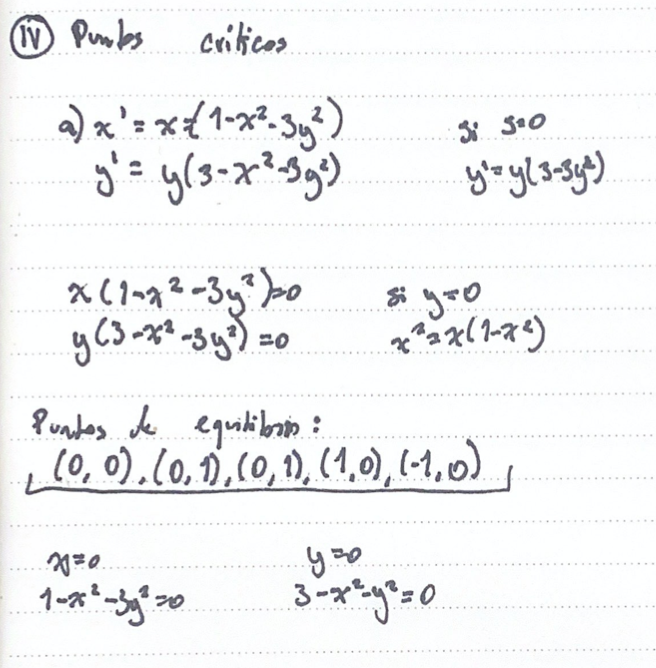 iv Puntos críticos
a) x' = x(1-x²-3y²) si s=0
y' = y(3-x²-3y²) y'=y(3-3y²)
x(1-x²-3y²)=0 si y=0
y(3-x²-3y²)=0 x²=x(1-x²)
Puntos de equilibrio:
(0,0), (0,1), (0,1), (1,0), (-1,0)
x=0 y=0
1-x²-3y²=0 3-x²-y²=0